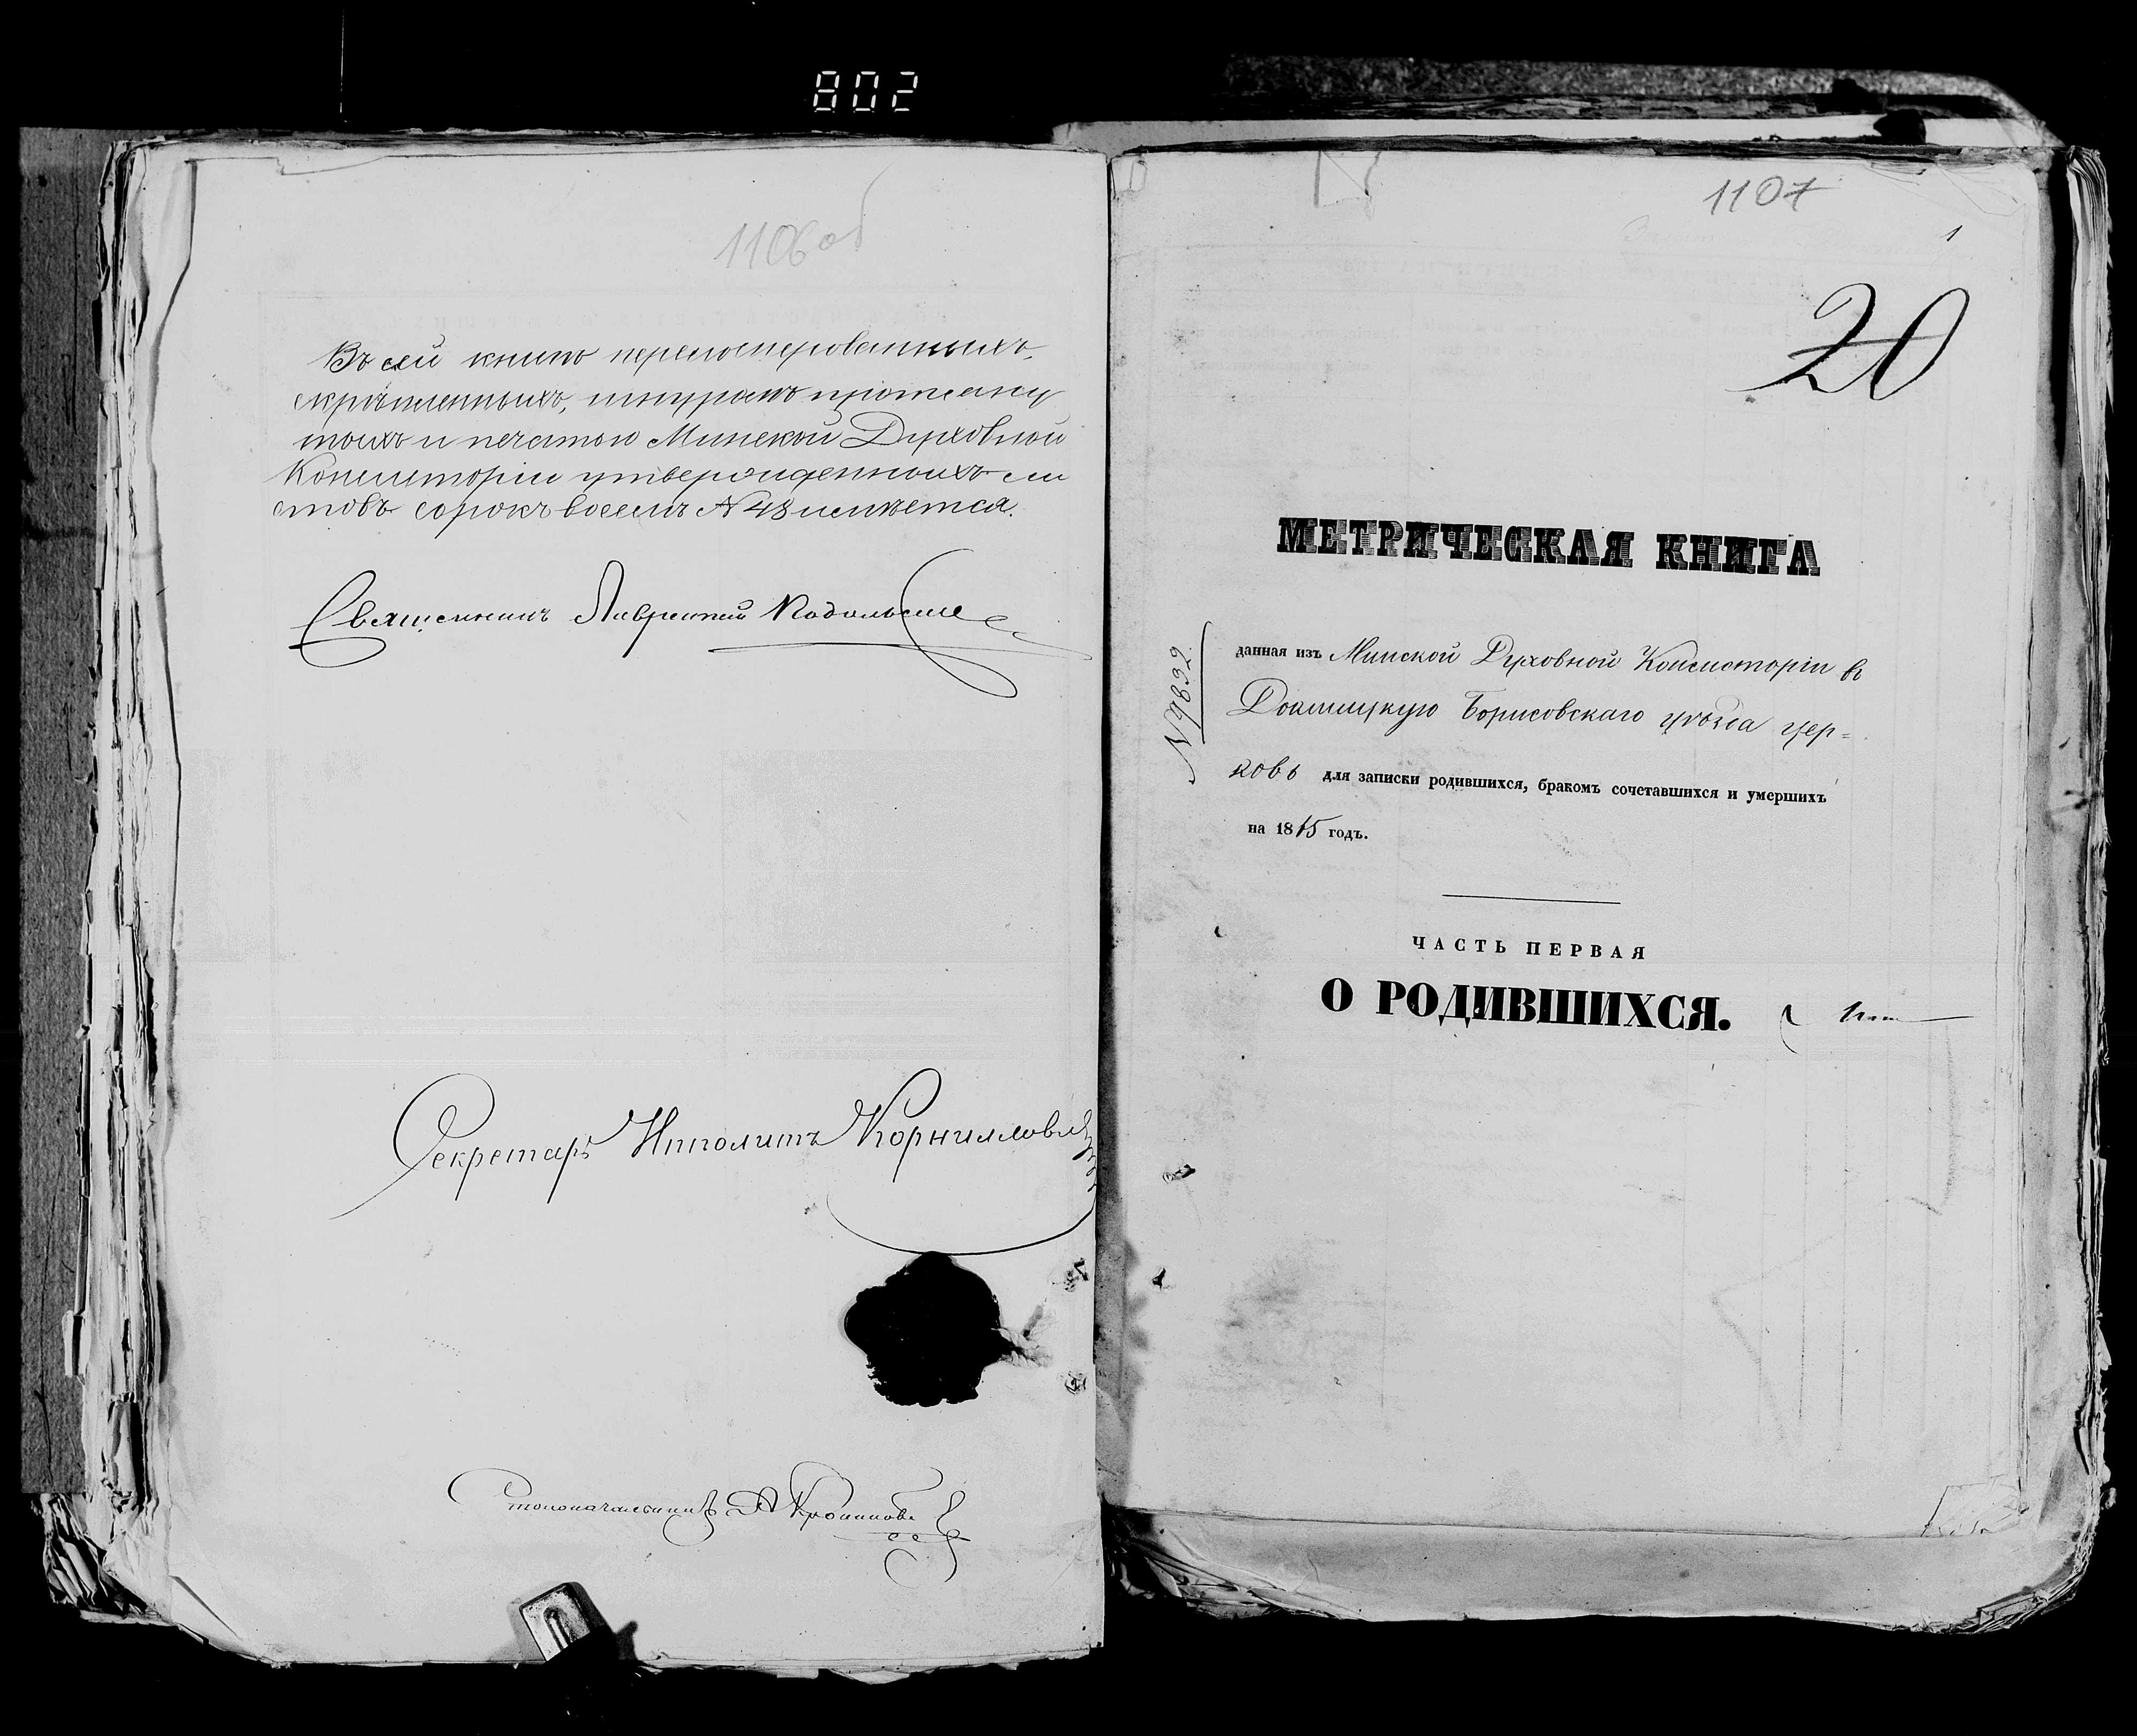 802
1106 об
Въ сей книгѣ перенумерованныхъ,
скрѣпленныхъ, шнуромъ протяну
тыхъ и печатью Минской Духовной
Консисторіи утвержденныхъ ли
стовъ сорокъ восемь № 48 имѣется.
Священникъ Лаврентій Подольскій
Секретарь Иполитъ Корниловичъ
Столоначальникъ
1107
1
20
МЕТРИЧЕСКАЯ КНИГА
№ 9832
данная изъ Минской Духовной Консисторіи въ
Докшицкую Борисовскаго уѣзда цер=
ковь для записки родившихся, бракомъ сочетавшихся и умершихъ
на 18 годъ.
ЧАСТЬ ПЕРВАЯ
О РОДИВШИХСЯ.